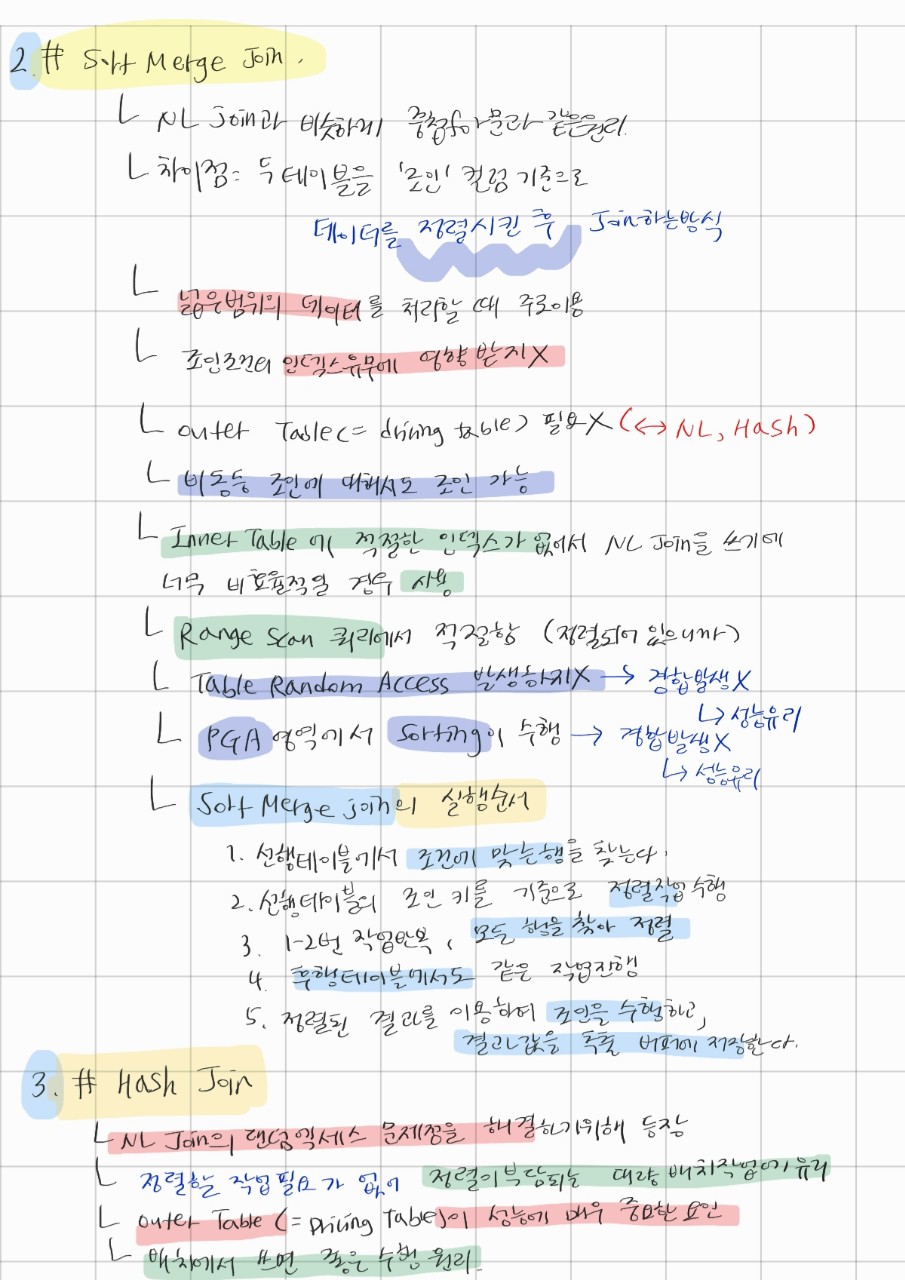 2. # Sort Merge Join.
└ NL Join과 비슷하게 중첩for문과 같은원리.
└ 차이점: 두 테이블을 '조인' 컬럼 기준으로
데이터를 정렬시킨 후 Join하는방식
└ 넓은범위의 데이터를 처리할 때 주로이용
└ 조인조건의 인덱스유무에 영향 받지X
└ outer Table (= driving table) 필요X (↔ NL, Hash)
└ 비동등 조인에 대해서도 조인 가능
└ Inner Table에 적절한 인덱스가 없어서 NL Join을 쓰기에
너무 비효율적일 경우 사용
└ Range Scan 쿼리에서 적절함 (정렬되어 있으니까)
└ Table Random Access 발생하지X → 경합발생X
↳ 성능유리
└ PGA 영역에서 Sorting이 수행 → 경합발생X
↳ 성능유리
└ Sort Merge join의 실행순서
1. 선행테이블에서 조건에 맞는행을 찾는다.
2. 선행테이블의 조인 키를 기준으로 정렬작업수행
3. 1-2번 작업반복, 모든 행을 찾아 정렬
4. 후행테이블에서도 같은 작업진행
5. 정렬된 결과를 이용하여 조인을 수행하고,
결과값을 추출 버퍼에 저장한다.
3. # Hash Join
└ NL Join의 랜덤엑세스 문제점을 해결하기위해 등장
└ 정렬할 작업필요가 없어 정렬이부담되는 대량 배치작업에 유리
└ outer Table (= Driving Table)이 성능에 매우 중요한 요인
└ 배치에서 쓰면 좋은 수행 원리.